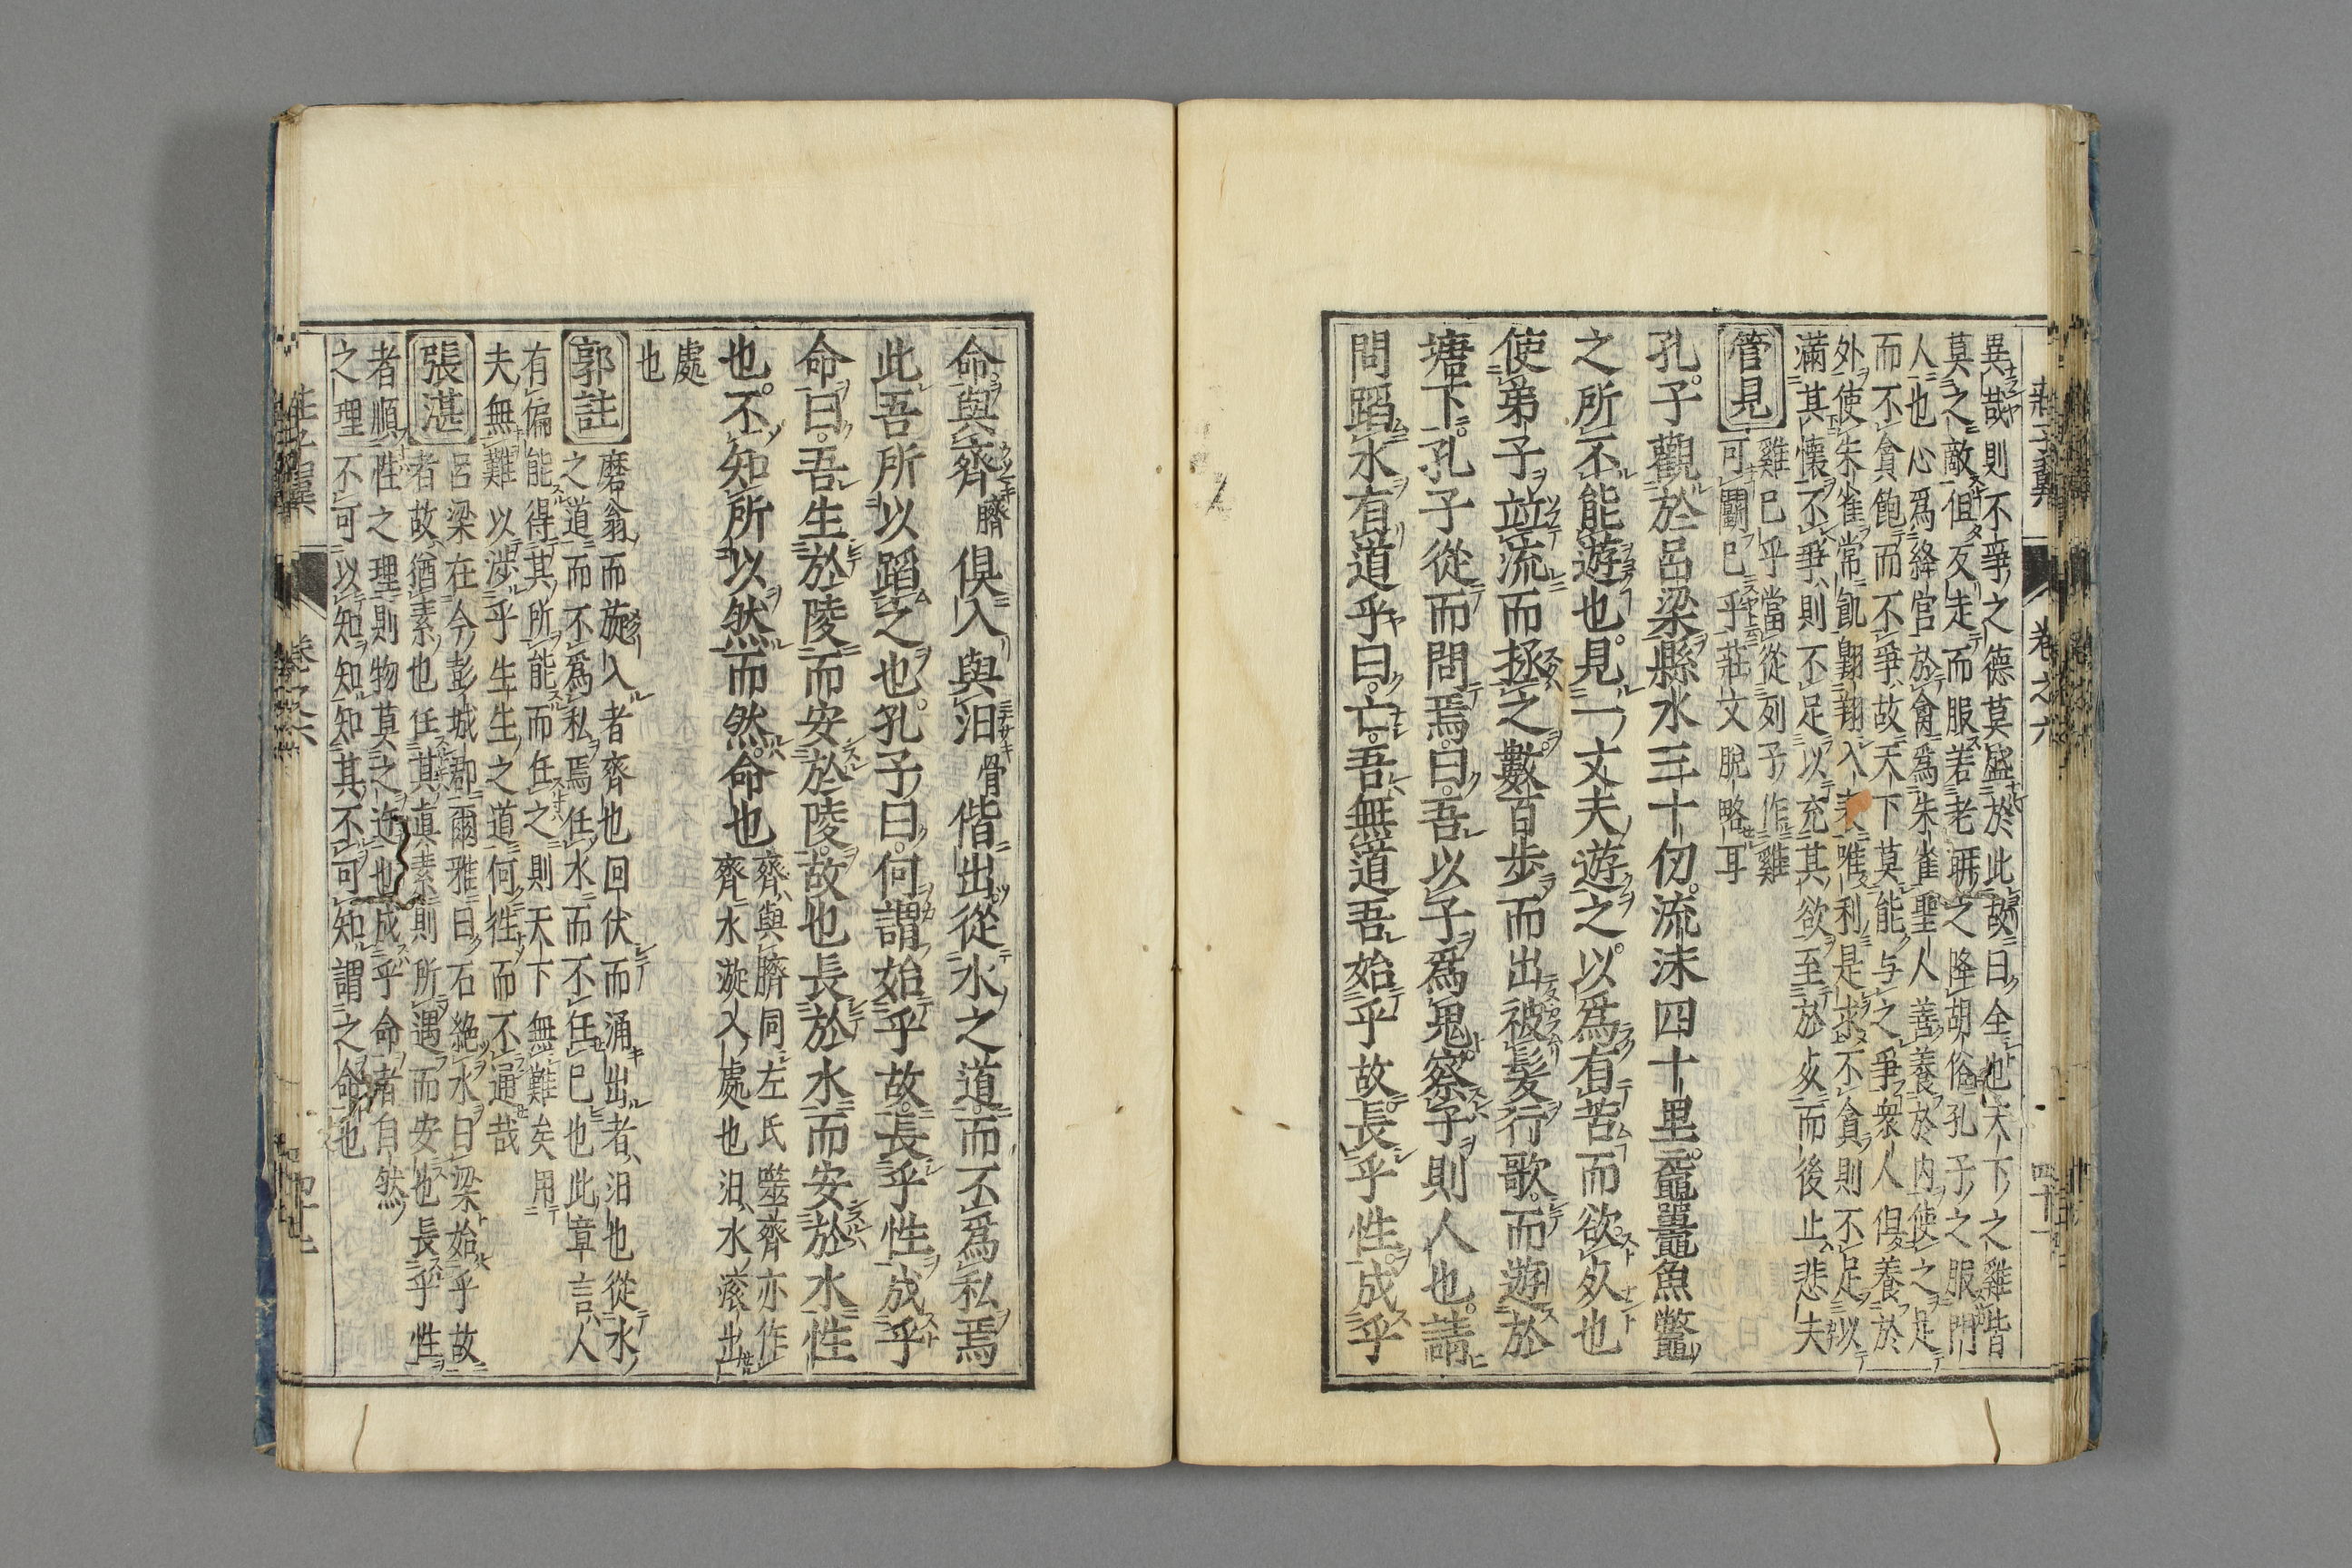 異哉則不爭之德莫盛於此故曰全也天下之雞皆
莫之敵但反走而服若老聃之降胡俗孔子之服門
人也心爲絳官於禽爲朱雀聖人善養於内使之足
而不貪飽而不爭故天下莫能与之爭衆人但養於
外使朱雀常飢翺翔入唯利是求不貪則不足以
滿其懷不爭則不足以充其欲至於攻而後止悲夫
管見
雞已乎當從列子作雞
可鬬已乎莊文脫略耳
孔子觀於呂梁縣水三十仞流沫四十里黿鼉魚鼈
之所不能遊也見一丈夫遊之以爲有苦而欲死也
使弟子竝流而拯之數百步而出被髪行歌而遊於
塘下孔子從而問焉曰吾以子爲鬼察子則人也請
問蹈水有道乎曰亡吾無道吾始乎故長乎性成乎
莊子翼 卷之六 四十一
命與齊臍俱入與汨骨偕出從水之道而不爲私焉
此吾所以蹈之也孔子曰何謂始乎故長乎性成乎
命曰吾生於陵而安於陵故也長於水而安於水性
也不知所以然而然命也
齊與臍同左氏噬齊亦作
齊水漩入處也汨水滚出
處
也
郭註
磨翁而旋入者齊也回伏而涌出者汨也從水
之道而不爲私焉任水而不任已也此章言人
有偏能得其所能而任之則天下無難矣用
夫無難以涉乎生生之道何往而不通哉
張湛
呂梁在今彭城郡爾雅曰石絶水曰梁始乎故
者故猶素也任其眞素則所遇而安也長乎性
者順性之理則物莫之逆也成乎命者自然
之理不可以知知知其不可知謂之命也